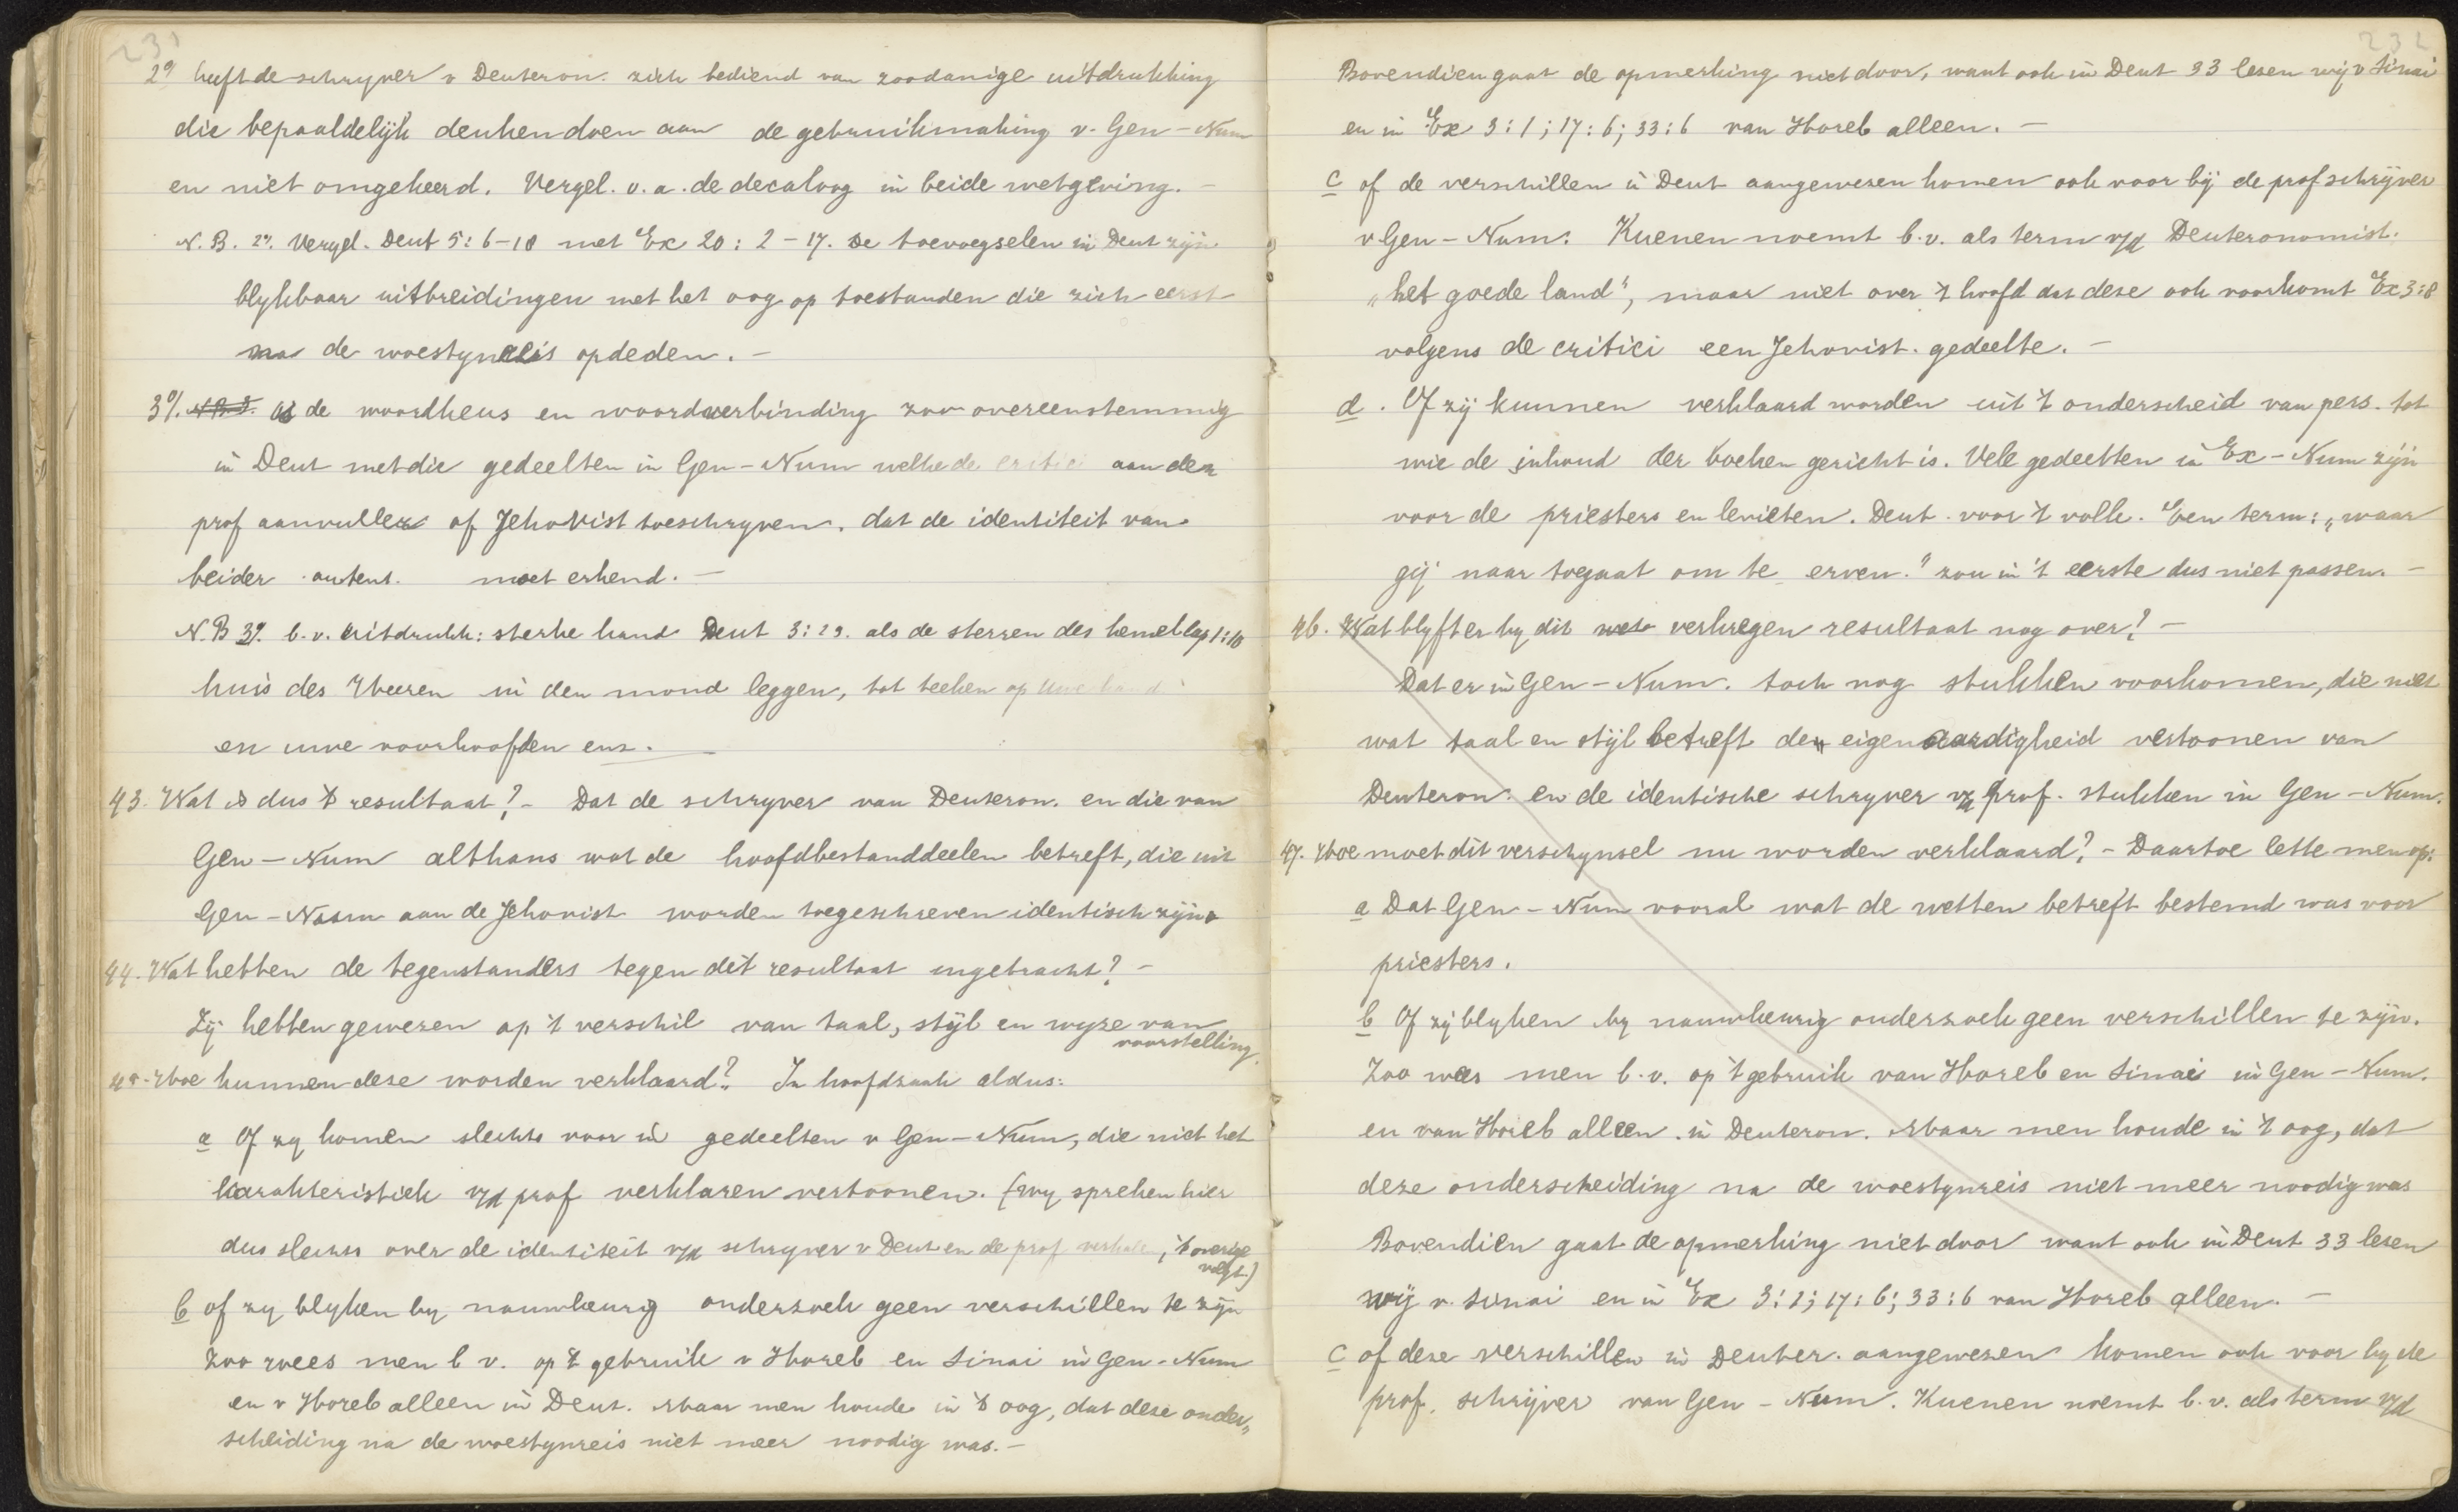 231
2° heeft de schryver v Deuteron. zich bediend van zoodanige uitdrukking
die bepaaldelijk denken doen aan de gebruikmaking v. Gen – Num
en niet omgekeerd. Vergel. o.a. de decaloog in beide wetgeving. –
N.B. 2°. Vergel. Deut 5:6–18 met Ex 20:2–17. De toevoegselen in Deut zijn
blykbaar uitbreidingen met het oog op toestanden die zich eerst
na de woestynreis opdeden. –
3°. N.B.3. Is de woordkeus en woordverbinding zoo overeenstemmig
in Deut met die gedeelten in Gen – Num welke de critici aan den
prof aanvuller of Jehovist toeschryven, dat de identiteit van
beider auteur. moet erkend. –
N.B 3°. b.v. uitdrukk: sterke hand Deut 3:29. als de sterren des hemels cap 1:10
huis des Heeren in den mond leggen, tot teeken op uwe hand
en uwe voorhoofden enz. –
43. Wat is dus 't resultaat? – Dat de schryver van Deuteron. en die van
Gen – Num althans wat de hoofdbestanddeelen betreft, die uit
Gen – Num aan de Jehovist worden toegeschreven identisch zijn.
44. Wat hebben de tegenstanders tegen dit resultaat ingebracht? –
Zij hebben gewezen op 't verschil van taal, stijl en wyze van
voorstelling.
45. Hoe kunnen deze worden verklaard? In hoofdzaak aldus:
a Of zy komen slechts voor in gedeelten v Gen – Num, die niet het
karakteristiek v/d prof verklaren vertoonen. (wy spreken hier
dus slechts over de identiteit v/d schryver v Deut en de prof verhale, 't overige
volgt.)
b of zy blyken by nauwkeurig onderzoek geen verschillen te zijn
Zoo wees men b v. op 't gebruik v Horeb en Sinai in Gen – Num
en v Horeb alleen in Deut. Maar men houde in 't oog, dat deze onder„
scheiding na de woestynreis niet meer noodig was. –
232
Bovendien gaat de opmerking niet door, want ook in Deut 33 lesen wij v Sinai
en in Ex 3:1; 17:6; 33:6 van Horeb alleen. –
c of de verschillen in Deut aangewezen komen ook voor bij de prof schrijver
v Gen – Num. Kuenen noemt b.v. als term v/d Deuteronomist.
„het goede land", maar niet over 't hoofd dat deze ook voorkomt Ex 3:8
volgens de critici een Jehovist. gedeelte. –
d. Of zij kunnen verklaard worden uit 't onderscheid van pers. tot
wie de inhoud der boeken gericht is. Vele gedeelten in Ex – Num zijn
voor de priesters en levieten. Deut. voor 't volk. Een term: „waar
gij naar toegaat om te erven." zou in 't eerste dus niet passen. –
46. Wat blyft er by dit verkregen resultaat nog over? –
Dat er in Gen – Num. toch nog stukken voorkomen, die niet
wat taal en stijl betreft den eigenaardigheid vertoonen van
Deuteron. en de identische schryver v/d prof. stukken in Gen – Num.
47. Hoe moet dit verschynsel nu worden verklaard? – Daartoe lette men op:
a Dat Gen – Num vooral wat de wetten betreft bestemd was voor
priesters.
b Of zij blyken by nauwkeurig onderzoek geen verschillen te zijn.
Zoo wees men b.v. op 't gebruik van Horeb en Sinai in Gen – Num.
en van Horeb alleen in Deuteron. Maar men houde in 't oog, dat
deze onderscheiding na de woestynreis niet meer noodig was
Bovendien gaat de opmerking niet door want ook in Deut 33 lesen
wij v. Sinai en in Ex 3:1; 17:6; 33:6 van Horeb alleen. –
c of deze verschillen in Deuter. aangewezen komen ook voor by de
prof. schrijver van Gen – Num. Kuenen noemt b.v. als term v/d